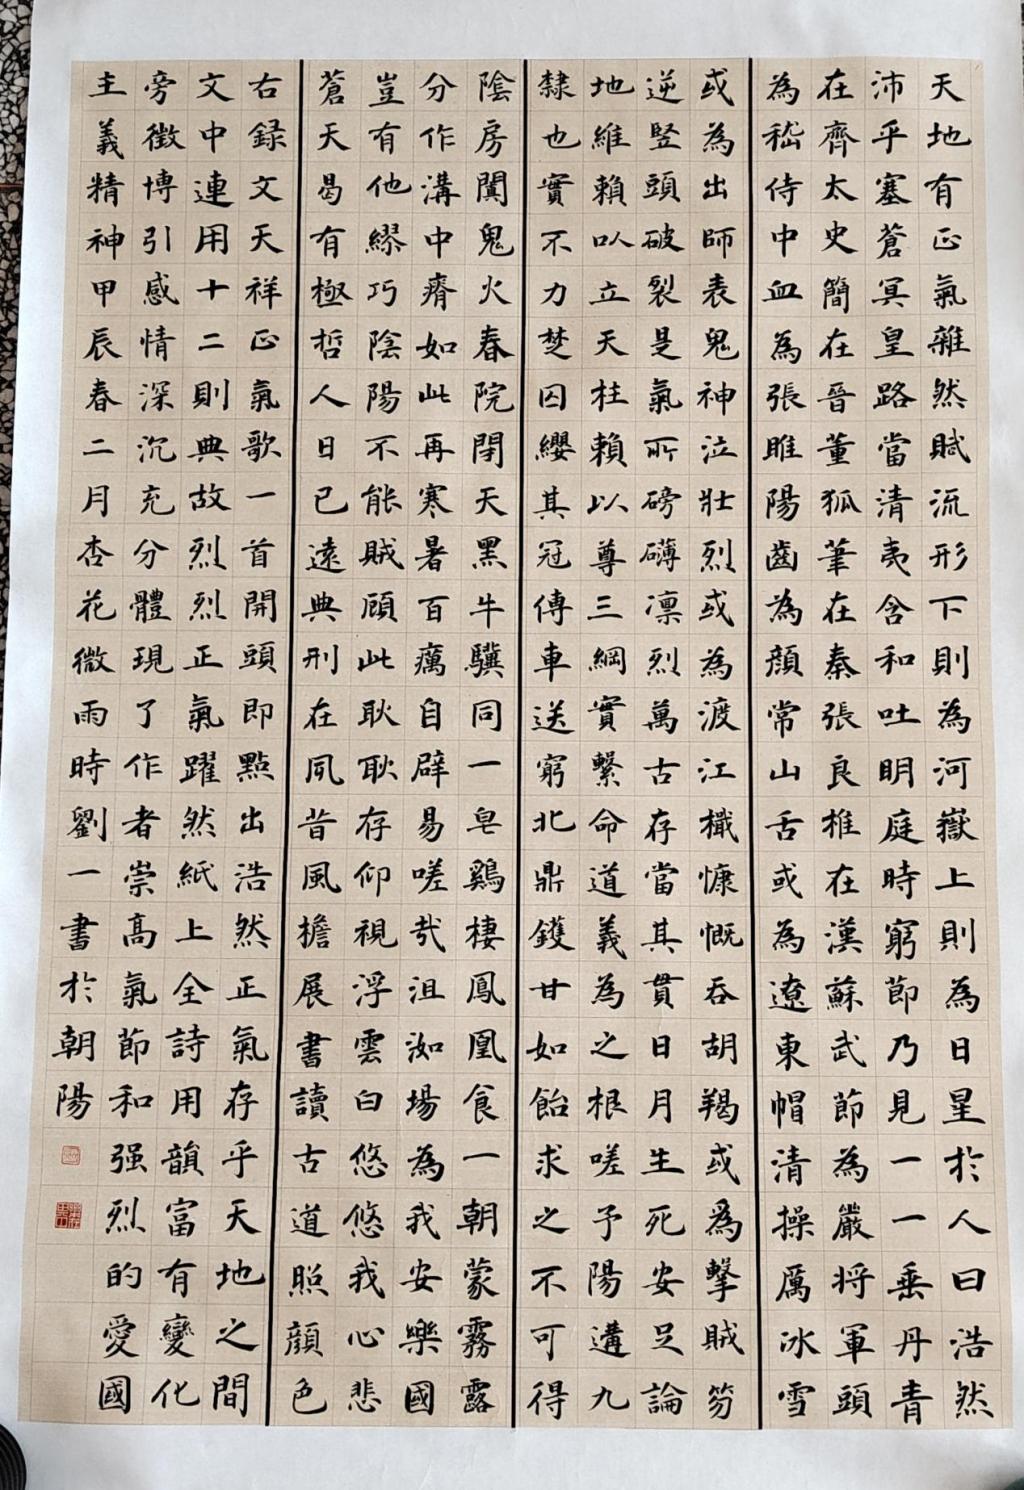 天地有正氣雜然賦流形下則為河嶽上則為日星於人曰浩然
沛乎塞蒼冥皇路當清夷含和吐明庭時窮節乃見一一垂丹青
在齊太史簡在晉董狐筆在秦張良椎在漢蘇武節為嚴將軍頭
為嵇侍中血為張睢陽齒為顏常山舌或為遼東帽清操厲冰雪
或為出師表鬼神泣壯烈或為渡江檝慷慨吞胡羯或為擊賊笏
逆豎頭破裂是氣所磅礴凛烈萬古存當其貫日月生死安足論
地維賴以立天柱賴以尊三綱實繫命道義為之根嗟予陽遘九
隸也實不力楚囚纓其冠傳車送窮北鼎鑊甘如飴求之不可得
陰房闐鬼火春院閉天黑牛驥同一皂鷄棲鳳凰食一朝蒙霧露
分作溝中瘠如此再寒暑百癘自辟易嗟哉沮洳場為我安樂國
豈有他繆巧陰陽不能賊顧此耿耿存仰視浮雲白悠悠我心悲
蒼天曷有極哲人日已遠典刑在夙昔風檐展書讀古道照顏色
右録文天祥正氣歌一首開頭即點出浩然正氣存乎天地之間
文中連用十二則典故烈烈正氣躍然紙上全詩用韻富有變化
旁徵博引感情深沉充分體現了作者崇高氣節和强烈的愛國
主義精神甲辰春二月杏花微雨時劉一書於朝陽